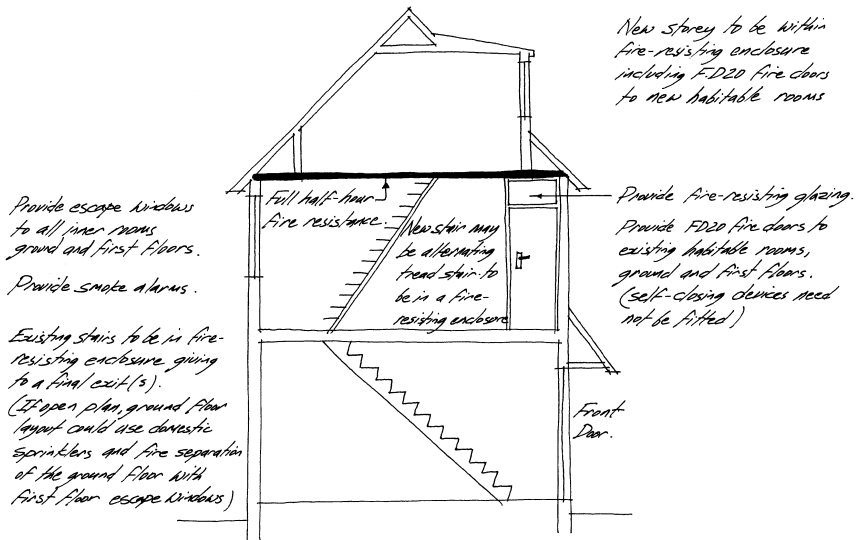 New storey to be within
fire-resisting enclosure
including F.D20 fire doors
to new habitable rooms
Provide escape windows
to all inner rooms
ground and first floors.
Provide smoke alarms.
Existing stairs to be in fire-
resisting enclosure giving
to a final exit(s).
(If open plan, ground floor
layout could use domestic
sprinklers and fire separation
of the ground floor with
first floor escape windows)
Full half-hour
fire resistance.
New stair may
be alternating
tread stair to
be in a fire-
resisting enclosure
Provide fire-resisting glazing.
Provide FD20 fire doors to
existing habitable rooms,
ground and first floors.
(self-closing devices need
not be fitted)
Front
Door.